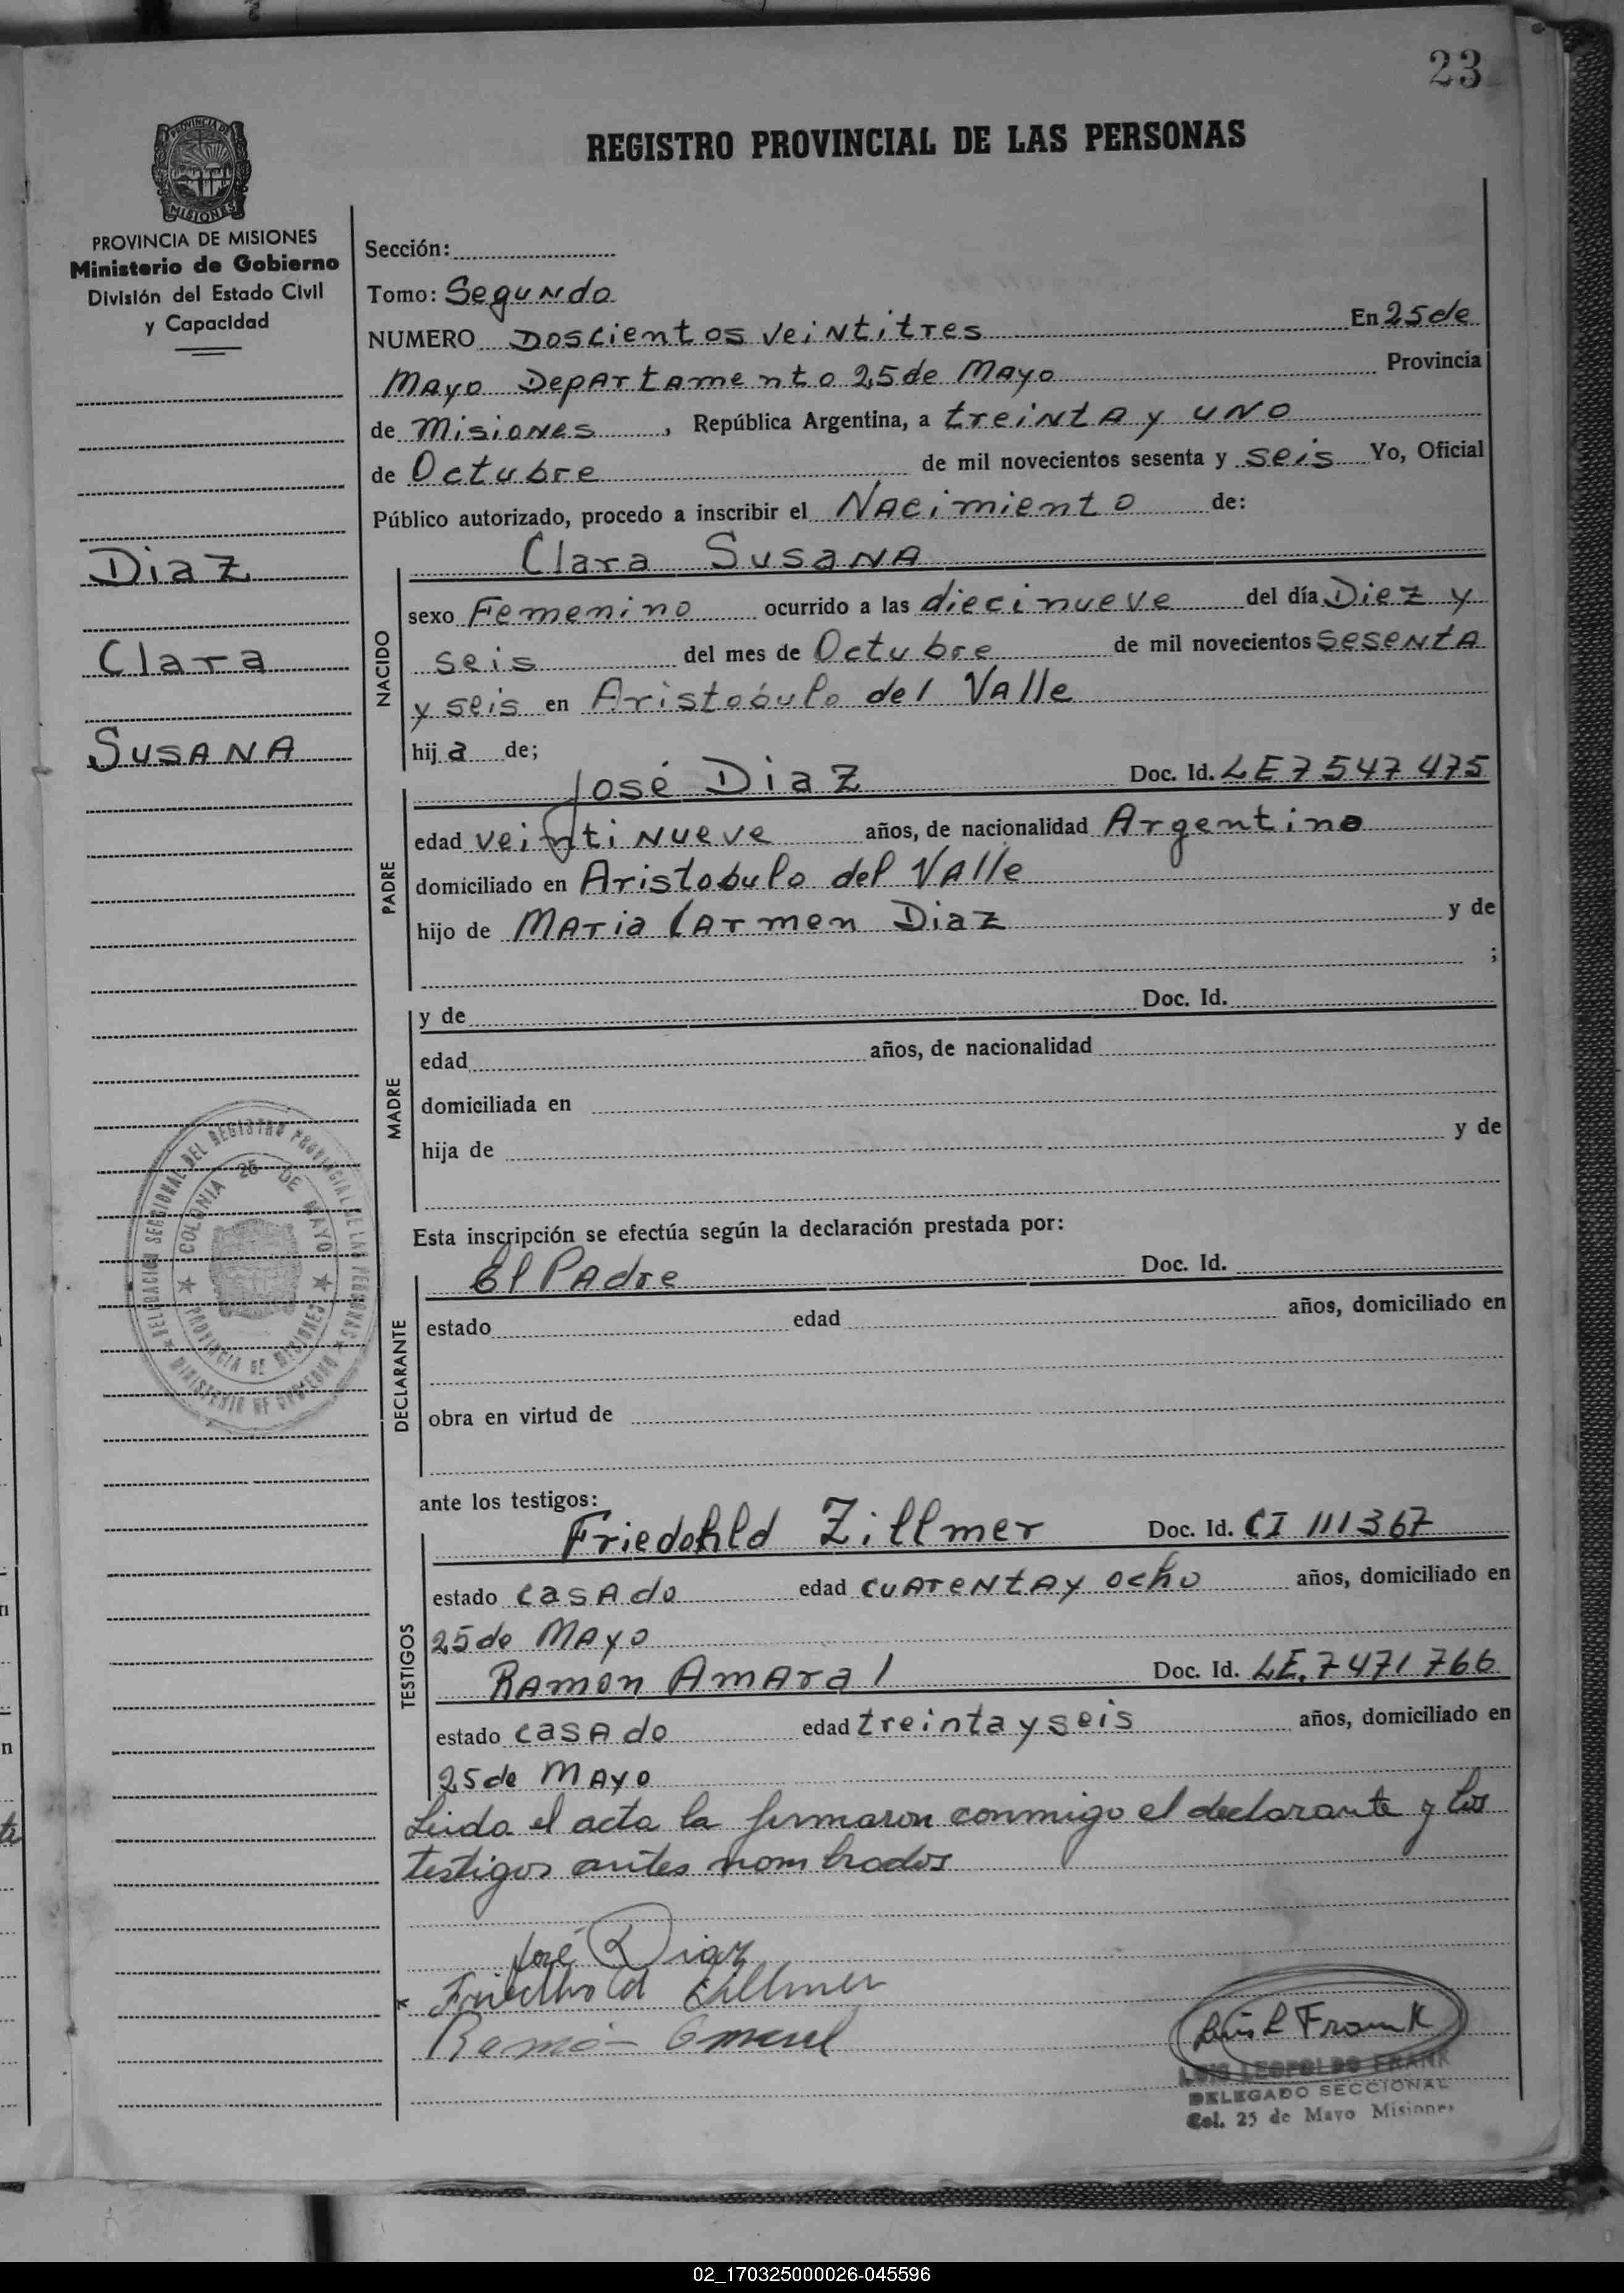 23
REGISTRO PROVINCIAL DE LAS PERSONAS
PROVINCIA DE MISIONES
PROVINCIA DE MISIONES
Ministerio de Gobierno
División del Estado Civil
y Capacidad
Diaz
Clara
Susana
DELEGACION SECCIONAL DEL REGISTRO PROVINCIAL DE LAS PERSONAS
MINISTERIO DE GOBIERNO
COLONIA 25 DE MAYO
PROVINCIA DE MISIONES
Sección:
Tomo: Segundo
NUMERO Doscientos veintitres En 25 de
Mayo Departamento 25 de Mayo Provincia
de Misiones, República Argentina, a treinta y uno
de Octubre de mil novecientos sesenta y seis Yo, Oficial
Público autorizado, procedo a inscribir el Nacimiento de:
Clara Susana
NACIDO
sexo Femenino ocurrido a las diecinueve del día Diez y
seis del mes de Octubre de mil novecientos sesenta
y seis en Aristobulo del Valle
hija de;
José Diaz Doc. Id. LE 7547475
PADRE
edad veintinueve años, de nacionalidad Argentino
domiciliado en Aristobulo del Valle
hijo de Maria Carmen Diaz y de
;
y de Doc. Id.
MADRE
edad años, de nacionalidad
domiciliada en
hija de y de
Esta inscripción se efectúa según la declaración prestada por:
El Padre Doc. Id.
DECLARANTE
estado edad años, domiciliado en
obra en virtud de
ante los testigos:
Friedohld Zillmer Doc. Id. CI 111367
TESTIGOS
estado casado edad cuarenta y ocho años, domiciliado en
25 de Mayo
Ramon Amaral Doc. Id. LE. 7471766
estado casado edad treinta y seis años, domiciliado en
25 de Mayo
Leida el acta la firmaron conmigo el declarante y los
testigos antes nombrados
José Diaz
Friedhold Zillmer
Ramón
Luis L Frank
LUIS LEOPOLDO FRANK
DELEGADO SECCIONAL
Col. 25 de Mayo Misiones
02_170325000026-045596